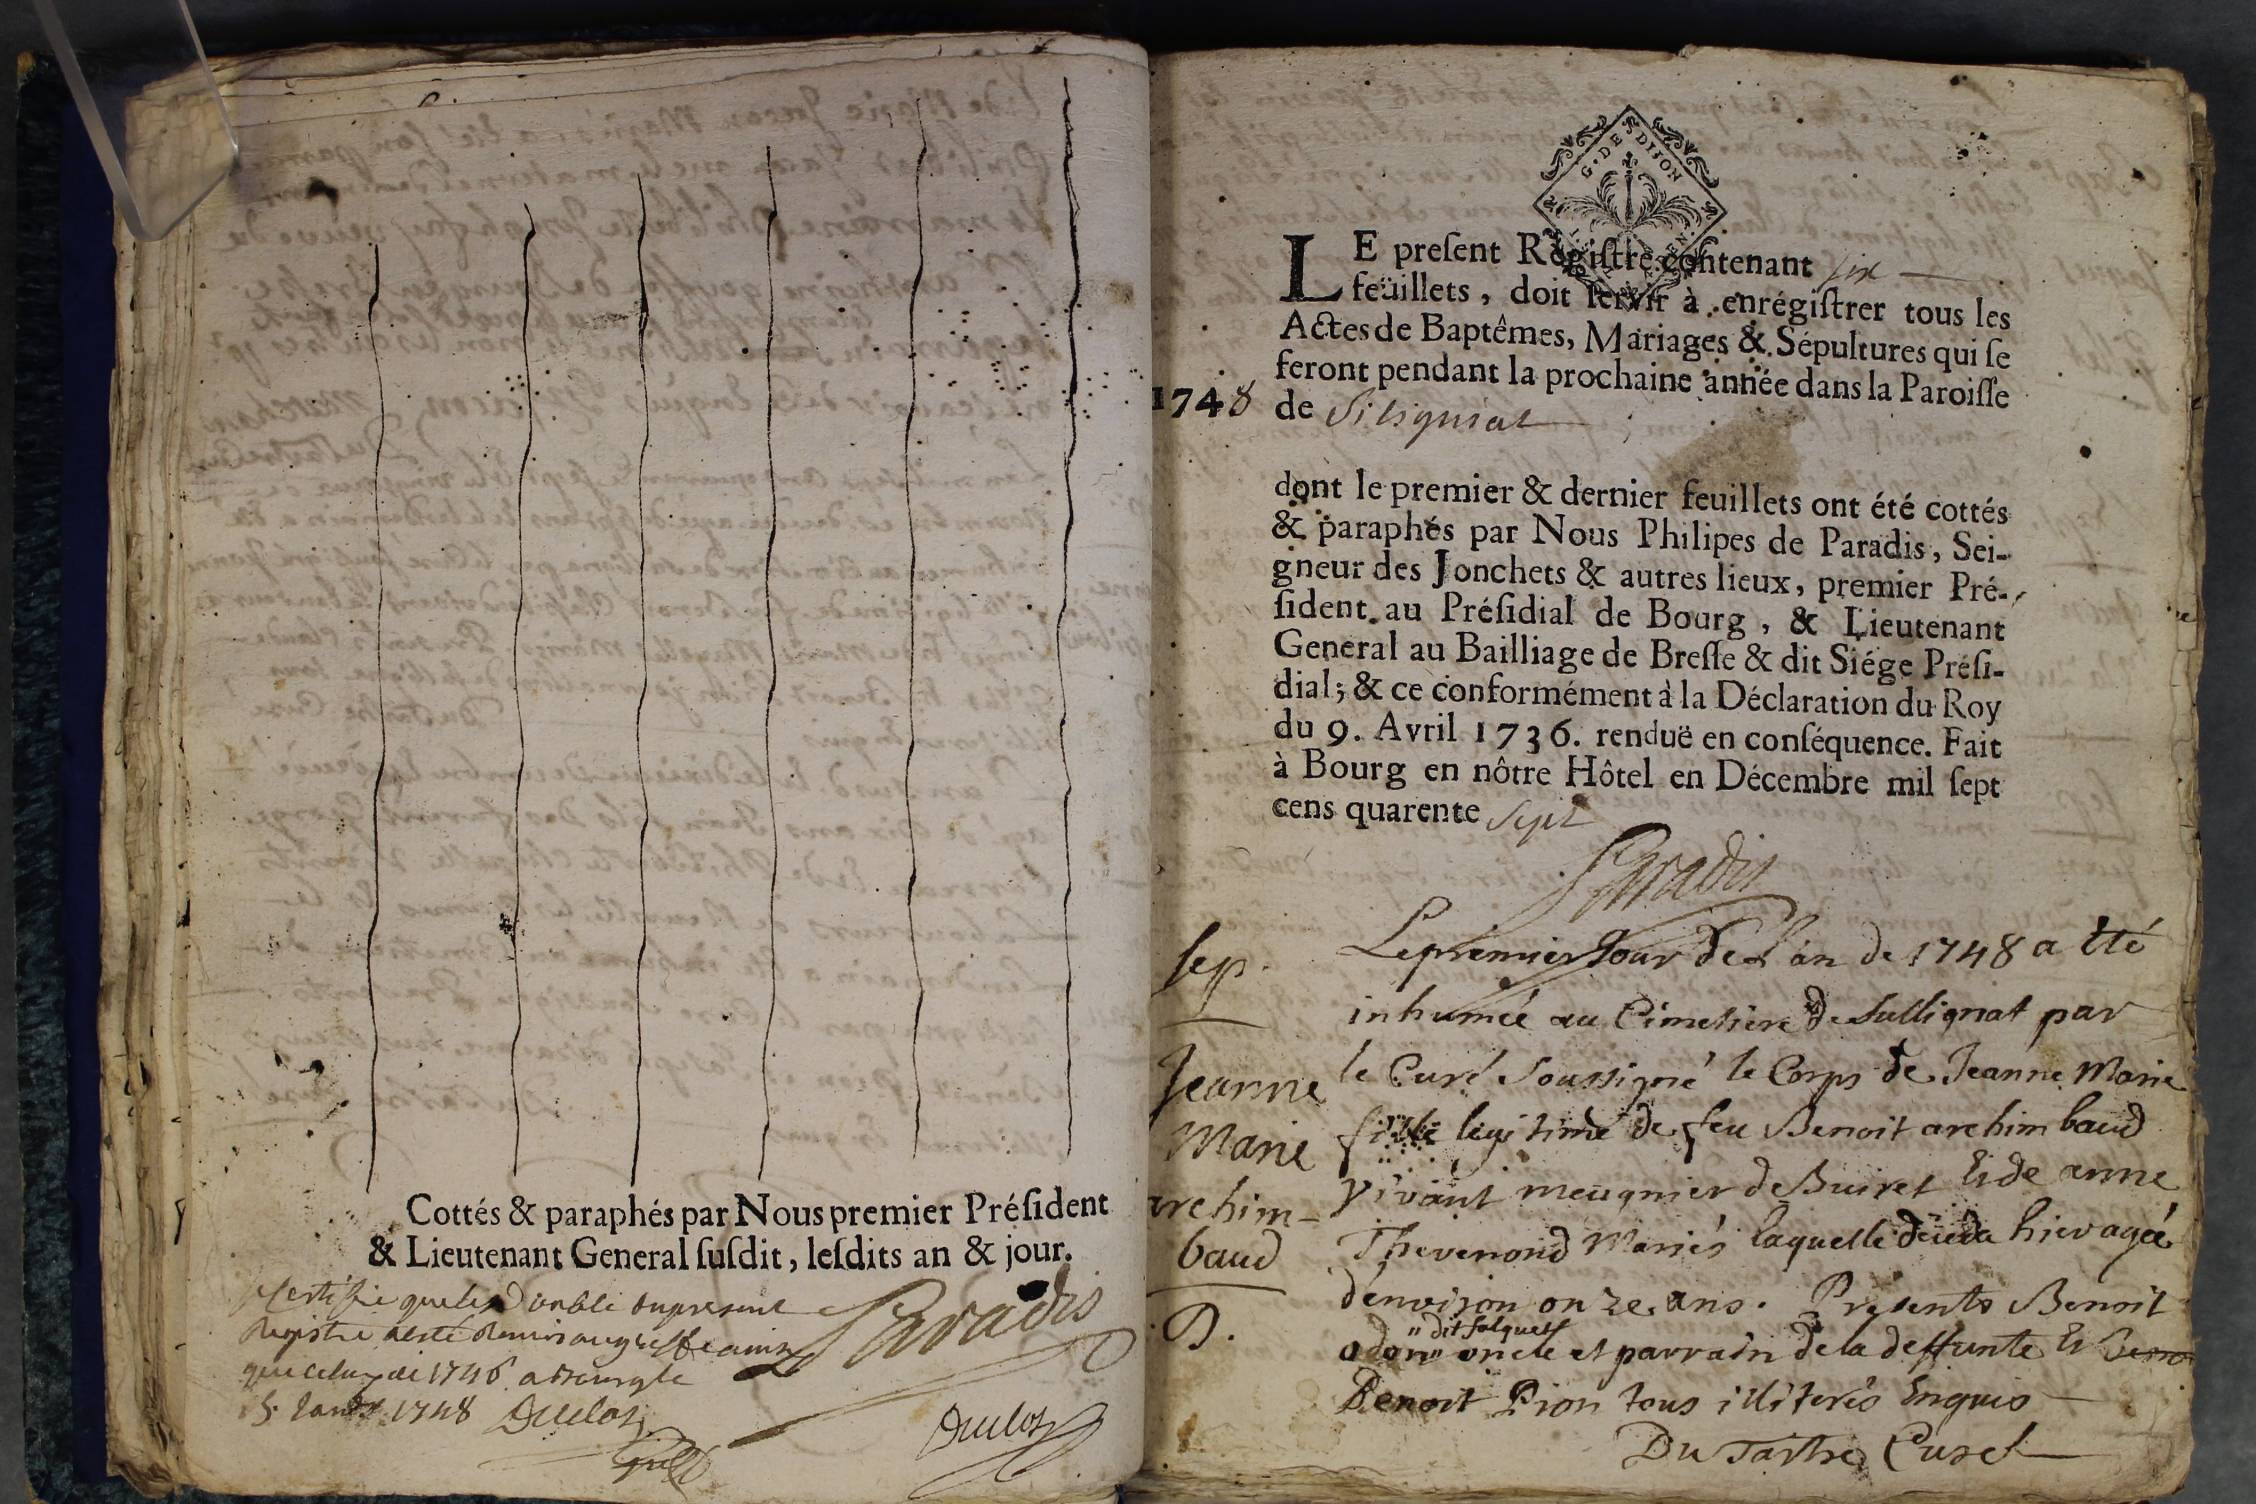 Cottés & paraphés par Nous premier Préſident
& Lieutenant General ſuſdit, leſdits an & jour.
Certifie que le Double du present
Registre a esté Remis au greffe ainsy
que celuy de 1746 a Bourg le
1748 Duclos
Paradis
Duclos
G. DE DIJON
LE preſent Regiſtre contenant six
feüillets, doit ſervir à enrégiſtrer tous les
Actes de Baptêmes, Mariages & Sépultures qui ſe
feront pendant la prochaine année dans la Paroiſſe
1748 de Siligniat
dont le premier & dernier feuillets ont été cottés
& paraphés par Nous Philipes de Paradis, Sei-
gneur des Jonchets & autres lieux, premier Pré-
ſident au Préſidial de Bourg, & Lieutenant
General au Bailliage de Breſſe & dit Siége Préſi-
dial; & ce conformément à la Déclaration du Roy
du 9. Avril 1736. renduë en conſéquence. Fait
à Bourg en nôtre Hôtel en Décembre mil ſept
cens quarente Sept
Paradis
Sep.
Jeanne
Marie
archim-
baud
D.
Le premier Jour de L'an de 1748 a été
inhumée au Cimetiere de Sullignat par
le Curé Soussigné le Corps de Jeanne Marie
fille legitime de feu Benoit archimbaud
vivant meugnier de Buiret Et de anne
Thevenond Mariés laquelle déceda hier agée
d'environ onze ans. Presents Benoit
" dit falquet
odon " oncle et parrain de la deffunte Et
Benoit Pion tous illiterés Enquis
Du Tartre Curé